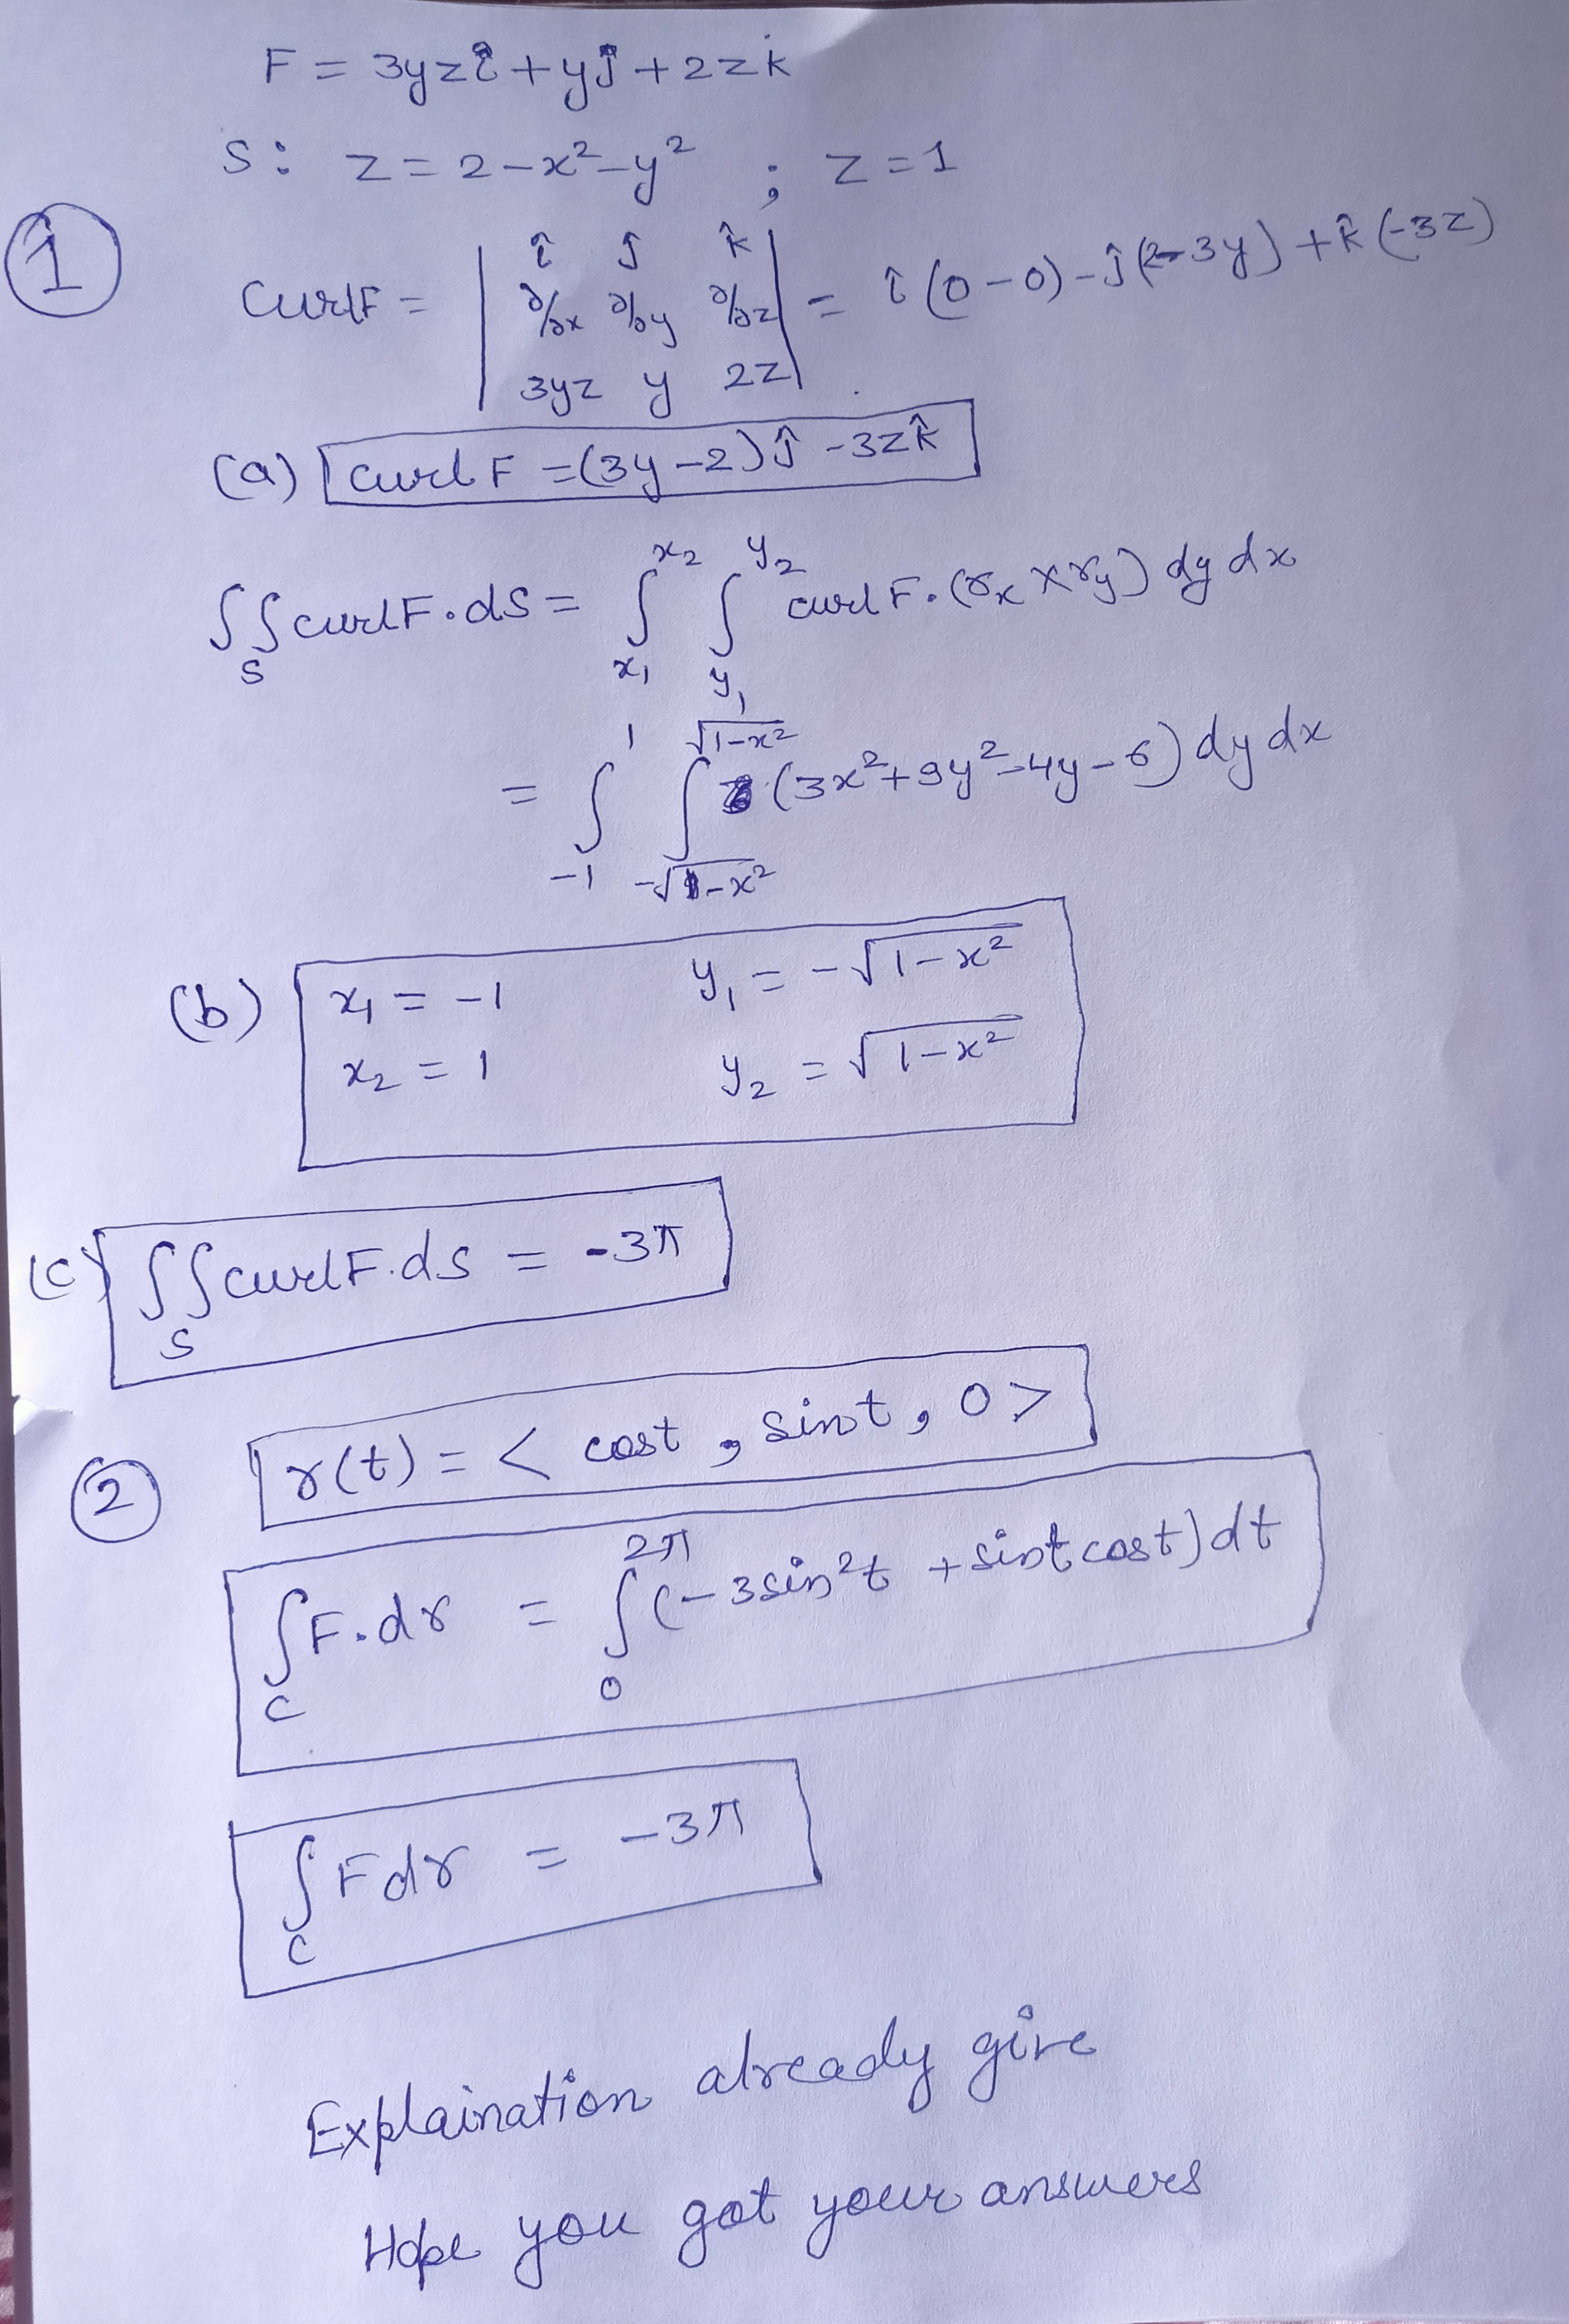 F = 3yzî + yĵ + 2zk
S: z = 2 - x² - y² ; z = 1
① CurlF = | î ĵ k̂ |
| ∂/∂x ∂/∂y ∂/∂z | = î (0 - 0) - ĵ (2 - 3y) + k̂ (-3z)
| 3yz y 2z |
(a) curl F = (3y - 2) ĵ - 3z k̂
∬_S curl F . ds = ∫_{x₁}^{x₂} ∫_{y₁}^{y₂} curl F . (r_x × r_y) dy dx
= ∫_{-1}^{1} ∫_{-√1-x²}^{√1-x²} (3x² + 9y² - 4y - 6) dy dx
(b) x₁ = -1 y₁ = -√1-x²
x₂ = 1 y₂ = √1-x²
(c) ∬_S curl F . ds = -3π
② r(t) = < cost , sint , 0 >
∫_C F . dr = ∫_0^{2π} (-3 sin²t + sint cost) dt
∫_C F dr = -3π
Explaination already give
Hope you got your answers